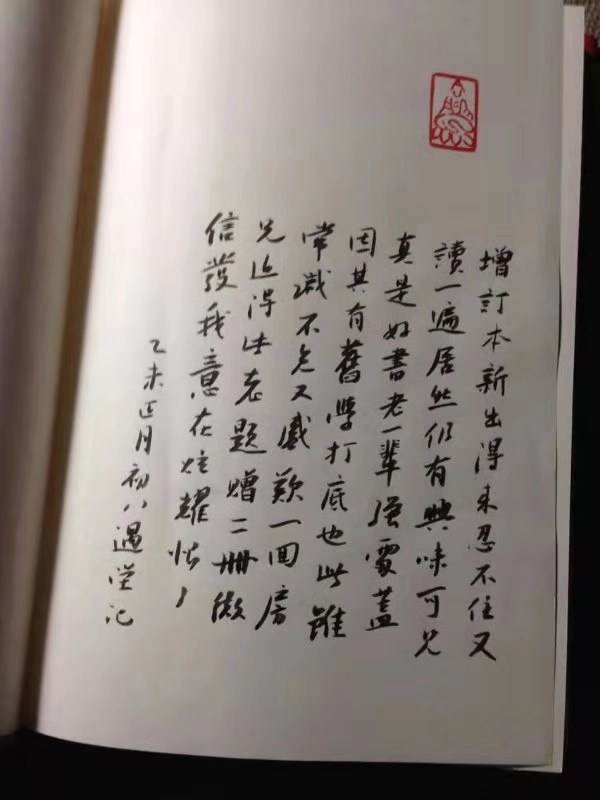 增訂本新出得來忍不住又
讀一遍居然仍有興味可見
真是好書老一輩強處蓋
因其有舊學打底也此雖
常識不免又感歎一回房
兄近得此老題贈二冊微
信發我意在炫耀
乙未正月初八遇堂記